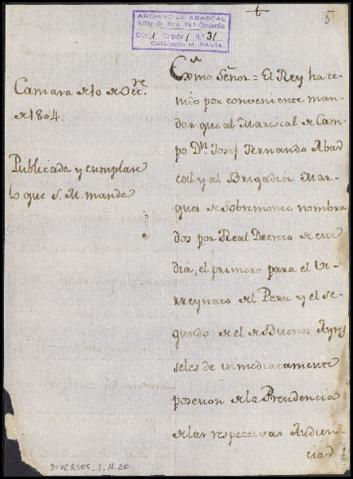 5
ARCHIVO DE ABASCAL
Virrey de Perú, Mqs. Concordia
Caja 1 Carpeta 1 N.º 31
Catálogo M. PAVÍA
Camara de 10 de Dic.re
de 1804.
Publicada y cumplase
lo que S. M. manda
Exmo Señor = El Rey ha te
nido por conveniente man
dar que al Mariscal de Cam
po Dn. Josef Fernando Abas
cal y al Brigadier Mar
ques de Sobremonte nombra
dos por Real Decreto de este
dia, el primero para el Vi
rreynato del Perú y el se
gundo de el de Buenos Ayres
seles de inmediatamente
posesion de la Presidencia
de las respectivas Audien
cias
DIVERSOS, 1, N. 20